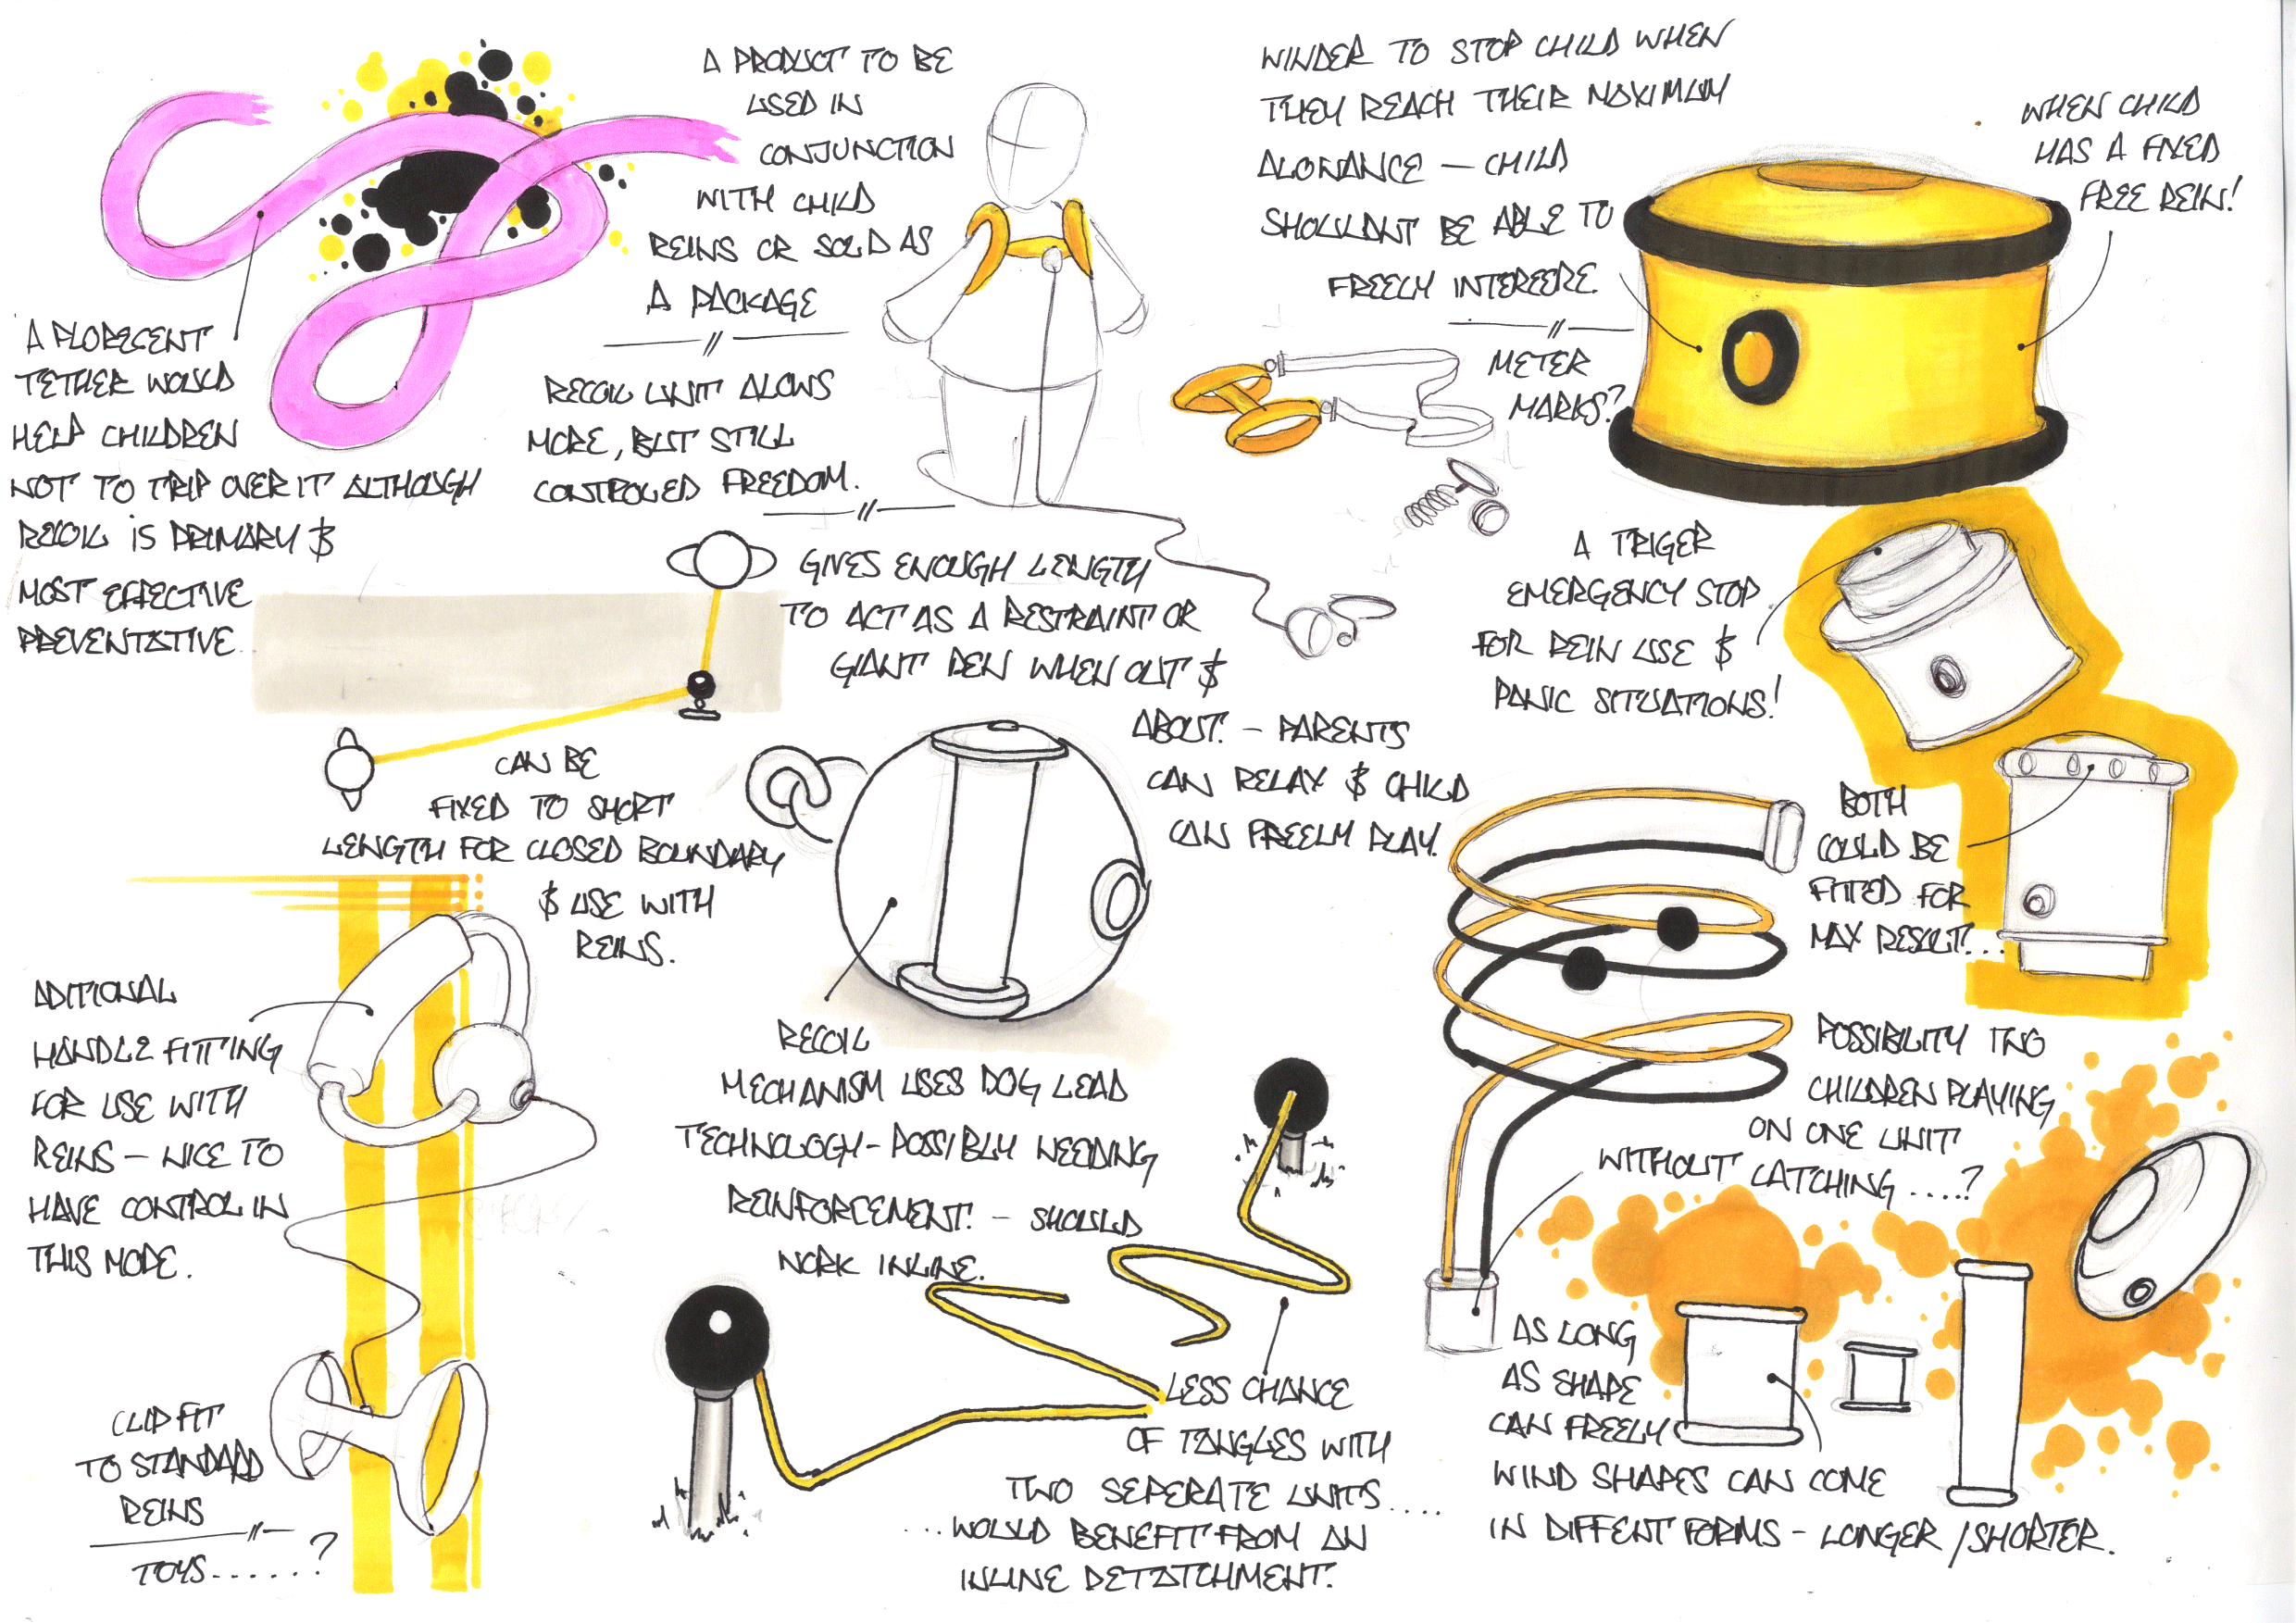 A PRODUCT TO BE
USED IN
CONJUNCTION
WITH CHILD
REINS OR SOLD AS
A PACKAGE
WINDER TO STOP CHILD WHEN
THEY REACH THEIR MAXIMUM
ALOWANCE — CHILD
SHOULDNT BE ABLE TO
FREELY INTERFERE.
WHEN CHILD
HAS A FIXED
FREE REIN!
METER
MARKS?
A FLORECENT
TETHER WOULD
HELP CHILDREN
NOT TO TRIP OVER IT ALTHOUGH
RECOIL IS PRIMARY &
MOST EFFECTIVE
PREVENTATIVE
RECOIL UNIT ALOWS
MORE, BUT STILL
CONTROLED FREEDOM.
GIVES ENOUGH LENGTH
TO ACT AS A RESTRAINT OR
GIANT PEN WHEN OUT &
ABOUT. — PARENTS
CAN RELAX & CHILD
CAN FREELY PLAY.
A TRIGER
EMERGENCY STOP
FOR REIN USE &
PANIC SITUATIONS!
CAN BE
FIXED TO SHORT
LENGTH FOR CLOSED BOUNDARY
& USE WITH
REINS.
BOTH
COULD BE
FITTED FOR
MAX RESULT...
ADITIONAL
HANDLE FITTING
FOR USE WITH
REINS — NICE TO
HAVE CONTROL IN
THIS MODE.
RECOIL
MECHANISM USES DOG LEAD
TECHNOLOGY — POSSIBLY NEEDING
REINFORCEMENT. — SHOULD
WORK INLINE.
POSSIBILITY TWO
CHILDREN PLAYING
ON ONE UNIT
WITHOUT CATCHING ....?
CLIP FIT
TO STANDARD
REINS
TOYS......?
LESS CHANCE
OF TANGLES WITH
TWO SEPERATE UNITS....
...WOULD BENEFIT FROM AN
INLINE DETATCHMENT.
AS LONG
AS SHAPE
CAN FREELY
WIND SHAPES CAN COME
IN DIFFENT FORMS — LONGER / SHORTER.